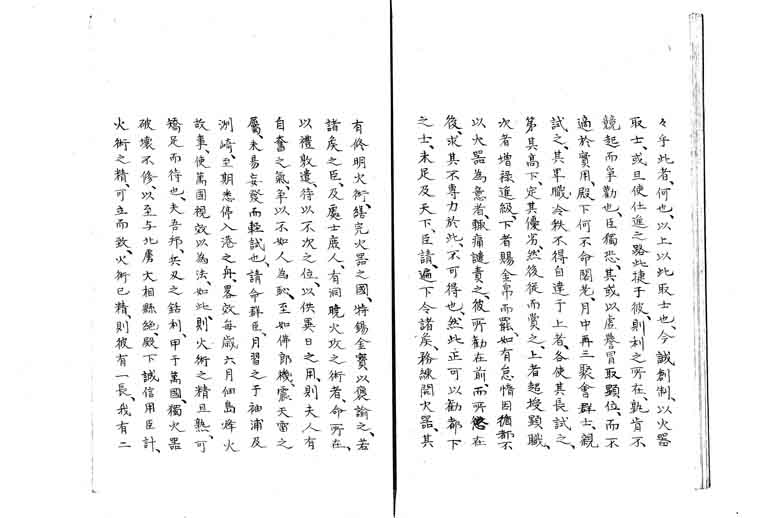 々乎此者、何也、以上以此取士也、今誠創制、以火器
取士、或且使仕進之路此捷于彼、則利之所在、孰肯不
競起而爭勸也、臣獨恐其或以虚譽冒取顕位、而不
適於實用、殿下何不命閣老、月中再三聚會群士、親
試之、其卑職冷秩不得自達于上者、各使其長試之、
第其高下、定其優劣、然後従而賞之、上者超授顕職、
次者増禄進級、下者賜金帛而罷、如有怠惰因循都不
以火器為意者、輙痛譴責之、彼所勧在前、而所懲在
後、求其不専力於此、不可得也、然此正可以勧都下
之士、未足及天下、臣請、遍下令諸矦、務練閲火器、其
有修明火術、繕完火器之國、特錫金寳以褒諭之、若
諸矦之臣、及處士庶人、有洞曉火攻之術者、命所在、
以禮敦遣、待以不次之位、以供異日之用、則夫人有
自奮之氣、卒以不如人為恥、至如佛郎機、震天雷之
屬、未易妄發而輕試也、請命群臣、月習之于袖浦及
洲崎、至期悉停入港之舟、畧效毎歳六月佃島烽火
故事、使萬國視效以為法、如此則火術之精且熟、可
矯足而待也、夫吾邦兵刄之銛利、甲于萬國、獨火器
破壊不修、以至与北虜大相縣絶、殿下誠信用臣計、
火術之精、可立而致、火術已精、則彼有一長、我有二